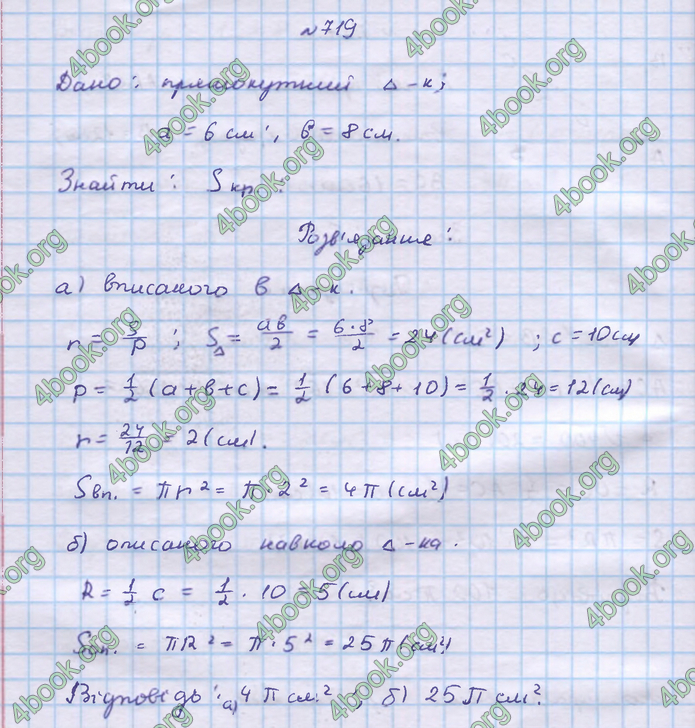 №719
Дано: прямокутний Δ-к;
a = 6 см, b = 8 см.
Знайти: Sкр.
Розв'язання:
а) вписаного в Δ-к.
r = S/p ; SΔ = ab/2 = 6·8/2 = 24 (см²) ; c = 10 см
p = 1/2 (a+b+c) = 1/2 (6+8+10) = 1/2 · 24 = 12 (см)
r = 24/12 = 2 (см).
Sвп. = πr² = π·2² = 4π (см²)
б) описаного навколо Δ-ка.
R = 1/2 c = 1/2 · 10 = 5 (см)
Sоп. = πR² = π·5² = 25π (см²)
Відповідь: а) 4π см² ; б) 25π см².
4book.org